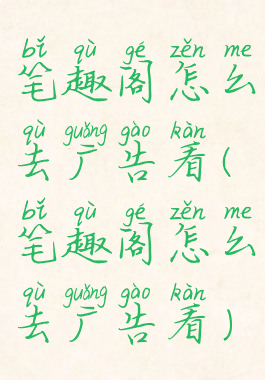 bǐ qù gé zěn me
笔趣阁怎么
qù guǎng gào kàn
去广告看(
bǐ qù gé zěn me
笔趣阁怎么
qù guǎng gào kàn
去广告看)